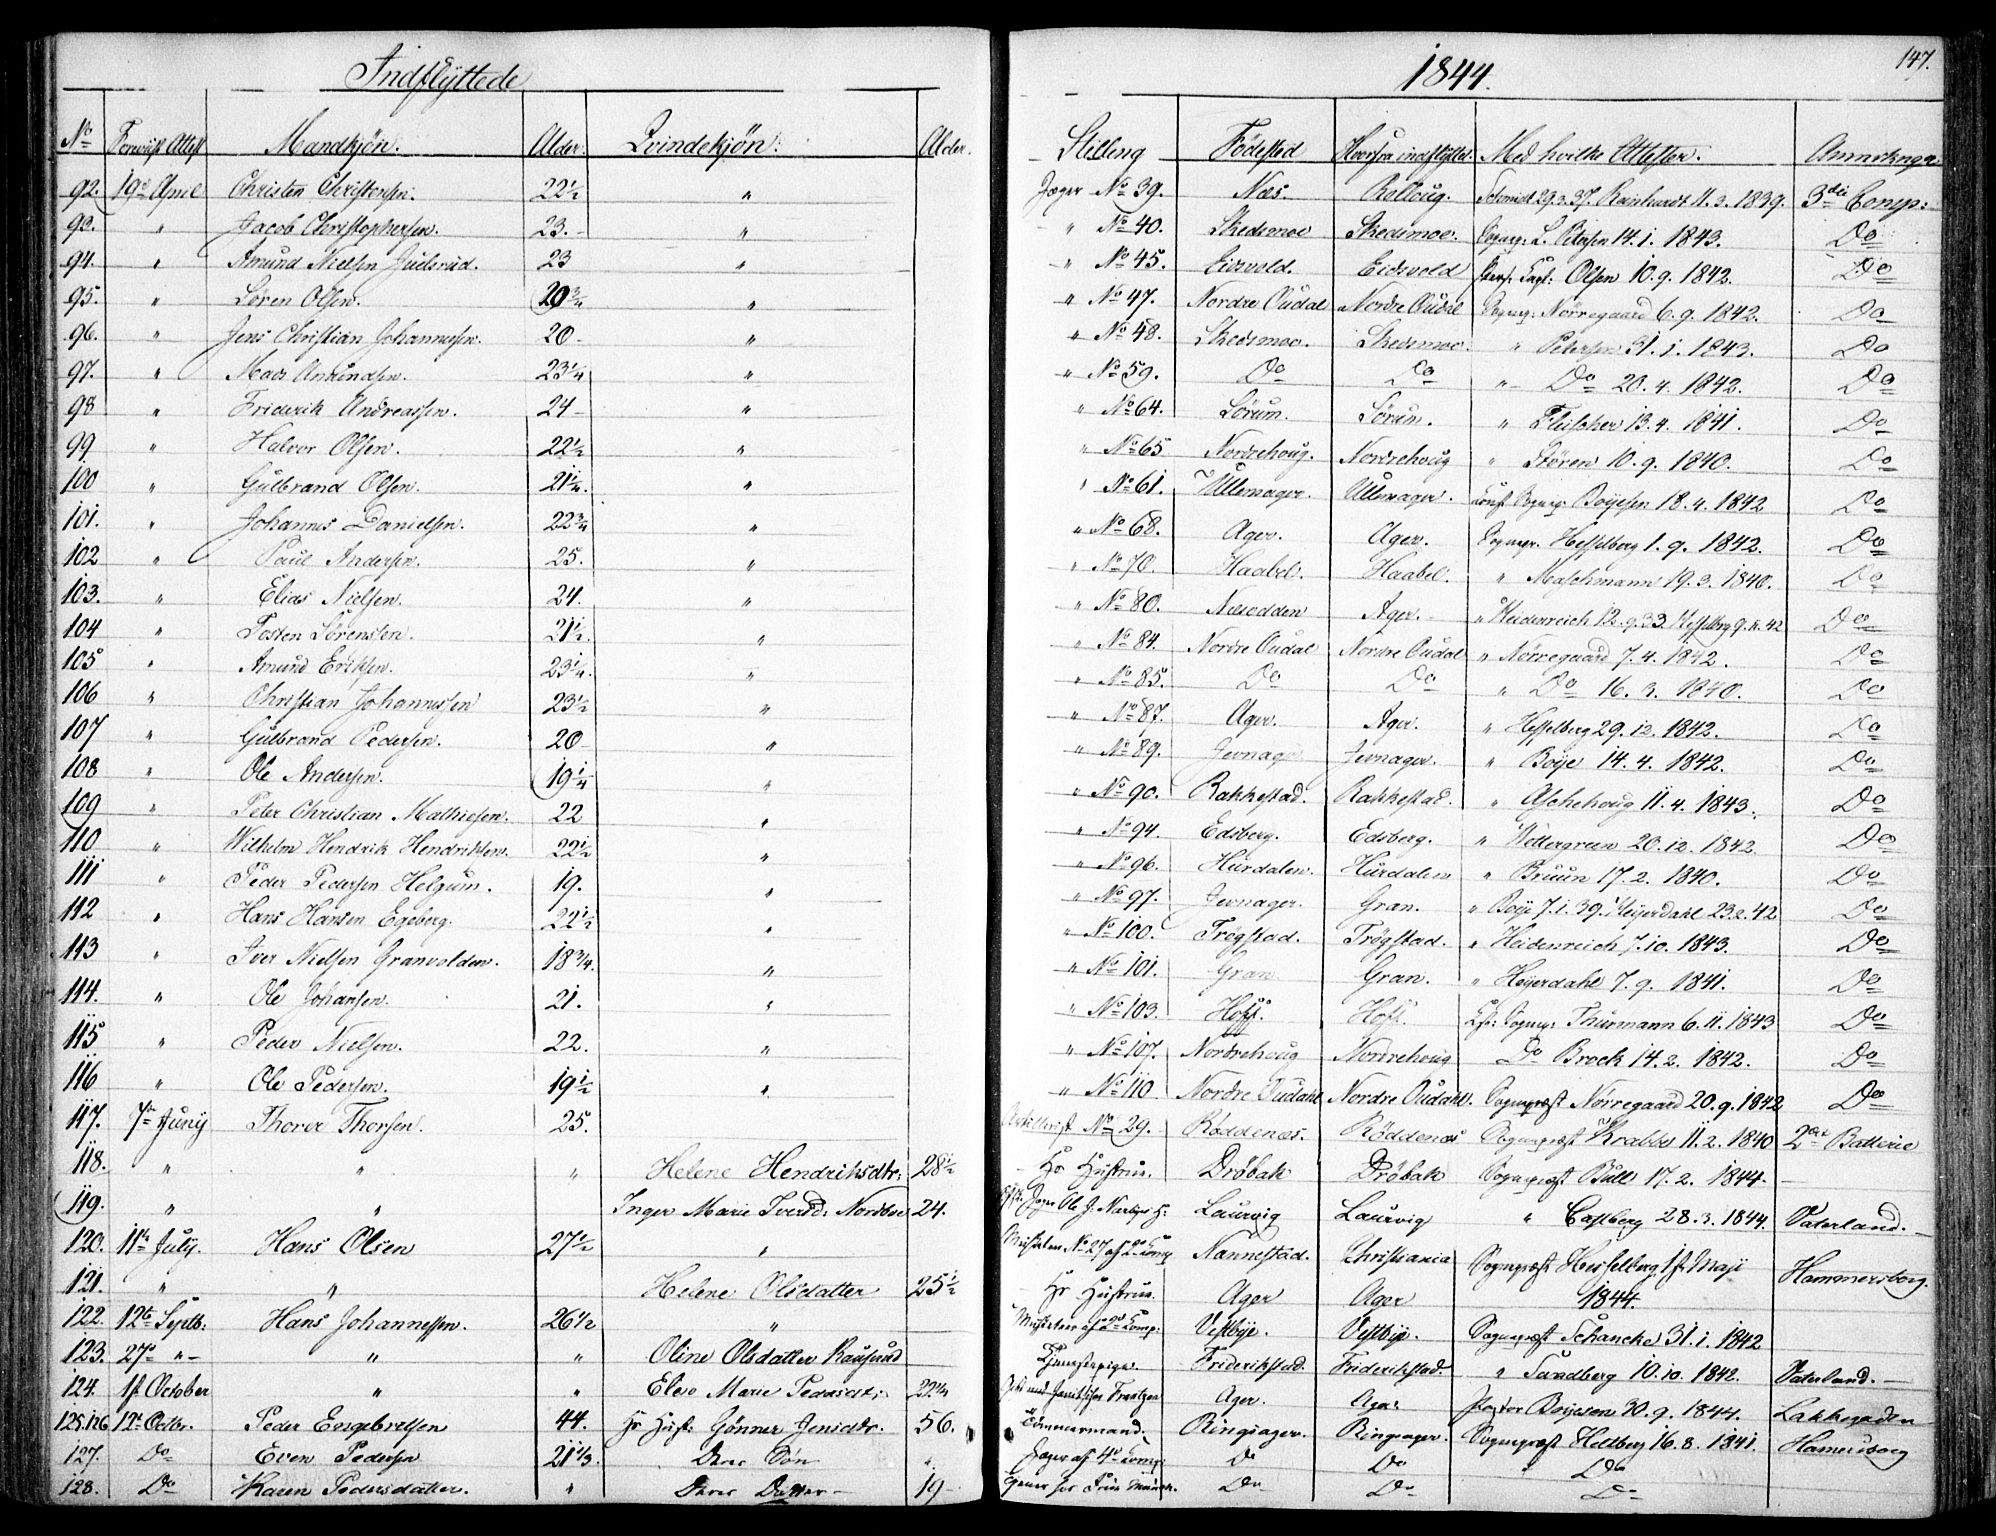 Indflÿttede 1844. 147.
No Forevist Attest Mandkjön. Alder. Qvindekjön: Alder. Stilling Födested Hvorfra indflÿttet. Med hvilke Attester. Anmærkngr
92. 19de April Christen Christensen. 22 1/2 " Jæger No 39. Næs. Schmidt 29.3.37. Reinhardt 11.3.1839. 3die Comp:
93. " Jacob Christophersen. 23. " " No 40. Skedsmoe Skedsmoe. Sognpr: L. Petersen 14.1.1843. Do
94. " Amund Nielsen Juelsrud. 23 " " No 45. Eidsvold. Eidsvold Pers: Capl: Olsen 10.9.1842. Do
95. " Sören Olsen. 20 3/4 " " No 47. Nordre Oudal Nordre Oudal Sognpr: Nörregaard 6.9.1842. Do
96. " Jens Christian Johannessen. 20 " " No 48. Skedsmoe. Skedsmoe. " Petersen 31.1.1843. Do
97. " Mads Amundsen. 23 1/4 " " No 59. Do Do " Do 20.4.1842. Do
98 " Friderik Andreassen. 24 " " No 64. Sörum. Sörum. " Fleischer 13.4.1841. Do
99 " Halvor Olsen. 22 1/2 " " No 65 Nordrehoug. Nordrehoug " Stören 10.9.1840. Do
100 " Gulbrand Olsen. 21 1/4. " " No 61. Ullensager. Ullensager. Const. Sognpr: Boÿesen 18.4.1842 Do
101. " Johannes Danielsen. 22 3/4 " " No 68. Ager. Ager. Sognpr. Hesselberg 1.9.1842. Do
102 " Paul Andersen. 25. " " No 70. Haabel. Haabel. " Maschmann 19.3.1840. Do
103. " Elias Nielsen. 24. " " No 80. Næsodden Ager. " Heidenreich 12.9.33. Hesselberg 9.11.42 Do
104 " Tosten Sörensen. 21 1/2. " " No 84. Nordre Oudal Nordre Oudal " Nörregaard 7.4.1842. Do
105 " Amund Eriksen. 23 1/4. " " No 85. Do Do " Do 16.3.1840. Do
106 " Christian Johannessen 23 1/2 " " No 87. Ager. Ager. " Hesselberg 29.12.1842. Do
107 " Gulbrand Pedersen. 20 " " No 89. Jevnager Jevnager. " Boÿe 14.4.1842. Do
108 " Ole Andersen. 19 1/4 " " No 90. Rakkestad. Rakkestad. " Aschehoug 11.4.1843. Do
109 " Peter Christian Mathiesen. 22 " " No 94. Edsberg. Edsberg. " Wettergreen 20.12.1842. Do
110 " Wilhelm Hendrik Hendriksen. 22 1/2 " " No 96. Hurdalen. Hurdalen " Bruun 17.2.1840. Do
111 " Peder Pedersen Helgum. 19. " " No 97. Jevnager. Gran. " Boÿe 7.1.39. Heÿerdahl 23.2.42 Do
112 " Hans Hansen Egeberg. 22 1/2 " " No 100. Trögstad. Trögstad. " Heidenreich 7.10.1843. Do
113 " Iver Nielsen Granvolden. 18 3/4. " " No 101. Gran Gran. " Heÿerdahl 7.9.1841. Do
114. " Ole Johansen. 21. " " No 103. Hoff. Hoff. Sognpr: Thurmann 6.11.1843 Do
115 " Peder Nielsen. 22. " " No 107. Nordrehoug Nordrehoug Do Brock 14.2.1842. Do
116 " Ole Pedersen. 19 1/2 " " No 110 Nordre Oudahl Nordre Oudahl. Sognepræst Nörregaard 20.9.1842 Do
117. 7de Junÿ Thorer Thorsen. 25. Artillerist No 29. Röddenæs. Röddenæs Sognepræst Krabbe 11.2.1840 2det Batterie
118. " " " Helene Hendriksdtr: 28 1/2 Hs Hustrue. Dröbak Dröbak Sognepræst Bull 17.2.1844.
119. " " Inger Marie Iversd: Nordbye 24. Laurvig Laurvig " Castberg 28.3.1844 Vaterland.
120. 11te Julÿ. Hans Olsen 27 1/2 " No 27 af 2den Comp Nannestad. Christiania Sognepræst Hesselberg 1st Maji
121. " " Helene Olsdatter 25 1/2 Hs Hustrue. Ager Ager 1844. Hammersborg.
122. 12te Septb: Hans Johannessen. 26 1/2 " Vestbÿe. Vestbÿe. Sognepræst Schancke 31.1.1842
123. 27de " " " Oline Olsdatter Tjenestepige. Friderikstad. Friderikstad. " Sandberg 10.10.1842. Vaterland.
124. 1st October " " Elen Marie Pedersdt: 22 1/4 Ager. Ager Pastor Boÿesen 30.9.1844. Lakkegaden
125.126 12te Octbr. Peder Engebretsen 44. Hs Hust: Gönner Jensdtr. 56. Tömmermand. Ringsager. Ringsager. Sognepræst Heltberg 16.8.1841. Hamersborg
127. Do Even Pedersen 21 1/3 Deres Sön " Jæger af 4de Comp: Do Do Do
128. Do Karen Pedersdatter. " Deres Datter 19 Do Do Do